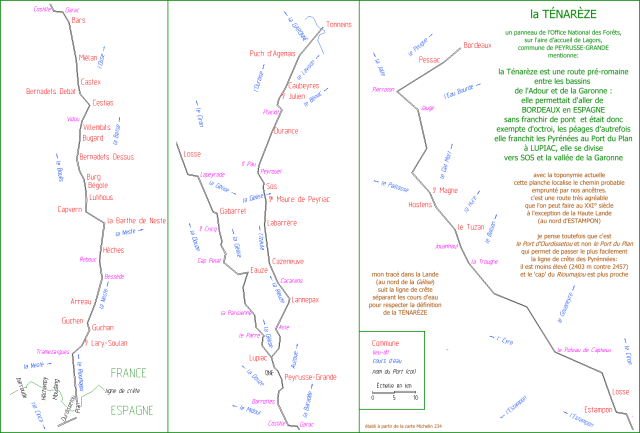 Castille
Garac
Bars
l'Osse
Miélan
Castex
Bernadets Debat
Cestias
Vidou
Villembits
Bugard
la Baïse
Bernadets Dessus
le Bouès
Burg
Bégole
Lutilhous
Capvern
la Barthe de Neste
la Neste
Hèches
Rebouc
Bessède
la Neste
Arreau
Guchen
Guchan
? Lary-Soulan
Tramezaïgues
la Neste
FRANCE
ligne de crête
ESPAGNE
Plan
Tonneins
la GARONNE
Puch d'Agenais
l'Ourbise
Caubeyres
? Julien
Placiat
Durance
le Ciron
Losse
Lapeyrade
? Pau
Peyroset
Sos
la Gélise
? Maure de Peyriac
Gabarret
Labarrère
? Cricq
la Gélise
la Douze
Cap Posat
Cazeneuve
Eauze
Cacarens
Lannepax
la Parisienne
Aste
le Parre
Lupiac
la Douze
Peyrusse-Grande
Barrottes
le Midour
Castille
Garac
la TÉNARÈZE
un panneau de l'Office National des Forêts,
sur l'aire d'accueil de Lagors,
commune de PEYRUSSE-GRANDE
mentionne:
la Ténarèze est une route pré-romaine
entre les bassins
de l'Adour et de la Garonne :
elle permettait d'aller de
BORDEAUX en ESPAGNE
sans franchir de pont et était donc
exempte d'octroi, les péages d'autrefois
elle franchit les Pyrénées au Port du Plan
à LUPIAC, elle se divise
vers SOS et la vallée de la Garonne
avec la toponymie actuelle
cette planche localise le chemin probable
emprunté par nos ancêtres.
c'est une route très agréable
que l'on peut faire au XXI° siècle
à l'exception de la Haute Lande
(au nord d'ESTAMPON)
je pense toutefois que c'est
le Port d'Ourdissetou et non le Port du Plan
qui permet de passer le plus facilement
la ligne de crête des Pyrénées:
il est moins élevé (2403 m contre 2457)
et le 'cap' du Rioumajou est plus proche
le Peugue
Bordeaux
Pessac
la Jalle
Pierroton
l'Eau Bourde
Jauge
? Magne
Hostens
la Hure
le Tuzan
Jouanhaut
la Trougne
l' Eyre
le Ciron
le Poteau de Captieux
Losse
Estampon
l'Estampon
l'Estampon
mon tracé dans la Lande
(au nord de la Gélise)
suit la ligne de crête
séparant les cours d'eau
pour respecter la définition
de la TÉNARÈZE
Commune
lieu-dit
cours d'eau
nom du Port (col)
Echelle en km
0 5 10
établi à partir de la carte Michelin 234